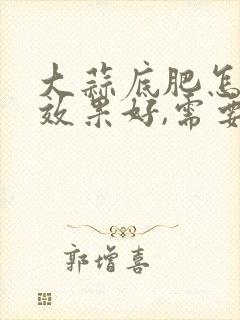 大蒜底肥怎
效果好,需要
郭增喜